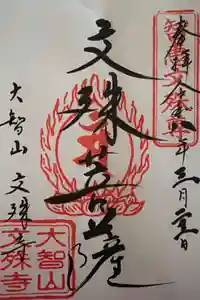 奉拝
年三月
文殊菩薩
大智山 文殊寺
大智山
文殊寺